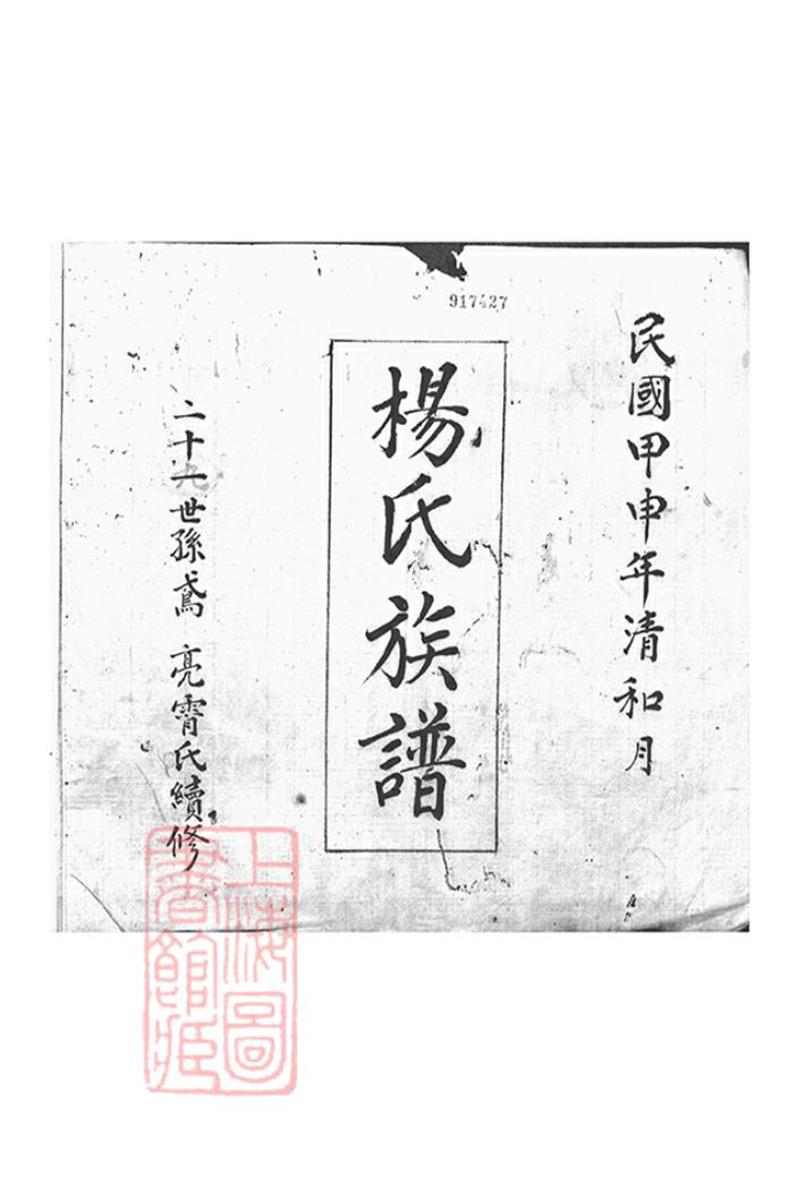 917427
民國甲申年清和月
楊氏族譜
二十一世孫鳶 亮霄氏續修
上海圖書館藏